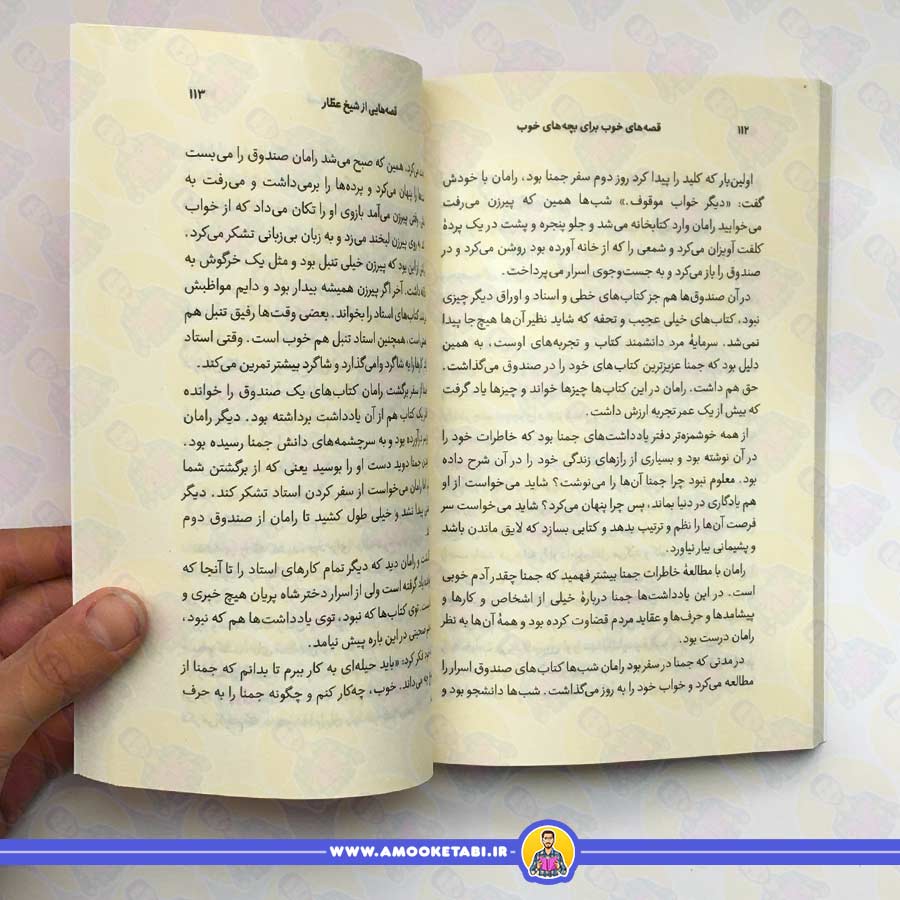 ۱۱۲ قصه‌های خوب برای بچه‌های خوب
اولین‌بار که کلید را پیدا کرد روز دوم سفر جمنا بود، رامان با خودش
گفت: «دیگر خواب موقوف.» شب‌ها همین که پیرزن می‌رفت
می‌خوابید رامان وارد کتابخانه می‌شد و جلو پنجره و پشت در یک پردهٔ
کلفت آویزان می‌کرد و شمعی را که از خانه آورده بود روشن می‌کرد و در
صندوق را باز می‌کرد و به جست‌وجوی اسرار می‌پرداخت.
در آن صندوق‌ها هم جز کتاب‌های خطی و اسناد و اوراق دیگر چیزی
نبود، کتاب‌های خیلی عجیب و تحفه که شاید نظیر آن‌ها هیچ‌جا پیدا
نمی‌شد. سرمایهٔ مرد دانشمند کتاب و تجربه‌های اوست، به همین
دلیل بود که جمنا عزیزترین کتاب‌های خود را در صندوق می‌گذاشت.
حق هم داشت. رامان در این کتاب‌ها چیزها خواند و چیزها یاد گرفت
که بیش از یک عمر تجربه ارزش داشت.
از همه خوشمزه‌تر دفتر یادداشت‌های جمنا بود که خاطرات خود را
در آن نوشته بود و بسیاری از رازهای زندگی خود را در آن شرح داده
بود. معلوم نبود چرا جمنا آن‌ها را می‌نوشت؟ شاید می‌خواست از او
هم یادگاری در دنیا بماند، پس چرا پنهان می‌کرد؟ شاید می‌خواست سر
فرصت آن‌ها را نظم و ترتیب بدهد و کتابی بسازد که لایق ماندن باشد
و پشیمانی ببار نیاورد.
رامان با مطالعهٔ خاطرات جمنا بیشتر فهمید که جمنا چقدر آدم خوبی
است. در این یادداشت‌ها جمنا دربارهٔ خیلی از اشخاص و کارها و
پیشامدها و حرف‌ها و عقاید مردم قضاوت کرده بود و همهٔ آن‌ها به نظر
رامان درست بود.
در مدتی که جمنا در سفر بود رامان شب‌ها کتاب‌های صندوق اسرار را
مطالعه می‌کرد و خواب خود را به روز می‌گذاشت. شب‌ها دانشجو بود و
قصه‌هایی از شیخ عطار ۱۱۳
می‌کرد، همین که صبح می‌شد رامان صندوق را می‌بست
را پنهان می‌کرد و پرده‌ها را برمی‌داشت و می‌رفت به
پیرزن می‌آمد بازوی او را تکان می‌داد که از خواب
روی پیرزن لبخند می‌زد و به زبان بی‌زبانی تشکر می‌کرد.
از این بود که پیرزن خیلی تنبل بود و مثل یک خرگوش به
داشت. آخر اگر پیرزن همیشه بیدار بود و دایم مواظبش
کتاب‌های استاد را بخواند. بعضی وقت‌ها رفیق تنبل هم
است، همچنین استاد تنبل هم خوب است. وقتی استاد
کارها را به شاگرد وامی‌گذارد و شاگرد بیشتر تمرین می‌کند.
از سفر برگشت رامان کتاب‌های یک صندوق را خوانده
یک کتاب هم از آن یادداشت برداشته بود. دیگر رامان
درآورده بود و به سرچشمه‌های دانش جمنا رسیده بود.
جمنا دوید دست او را بوسید یعنی که از برگشتن شما
رامان می‌خواست از سفر کردن استاد تشکر کند. دیگر
پیدا نشد و خیلی طول کشید تا رامان از صندوق دوم
و رامان دید که دیگر تمام کارهای استاد را تا آنجا که
یاد گرفته است ولی از اسرار دختر شاه پریان هیچ خبری و
توی کتاب‌ها که نبود، توی یادداشت‌ها هم که نبود،
صحبتی در این باره پیش نیامد.
فکر کرد: «باید حیله‌ای به کار ببرم تا بدانم که جمنا از
چه می‌داند. خوب، چه‌کار کنم و چگونه جمنا را به حرف
WWW.AMOOKETABI.IR